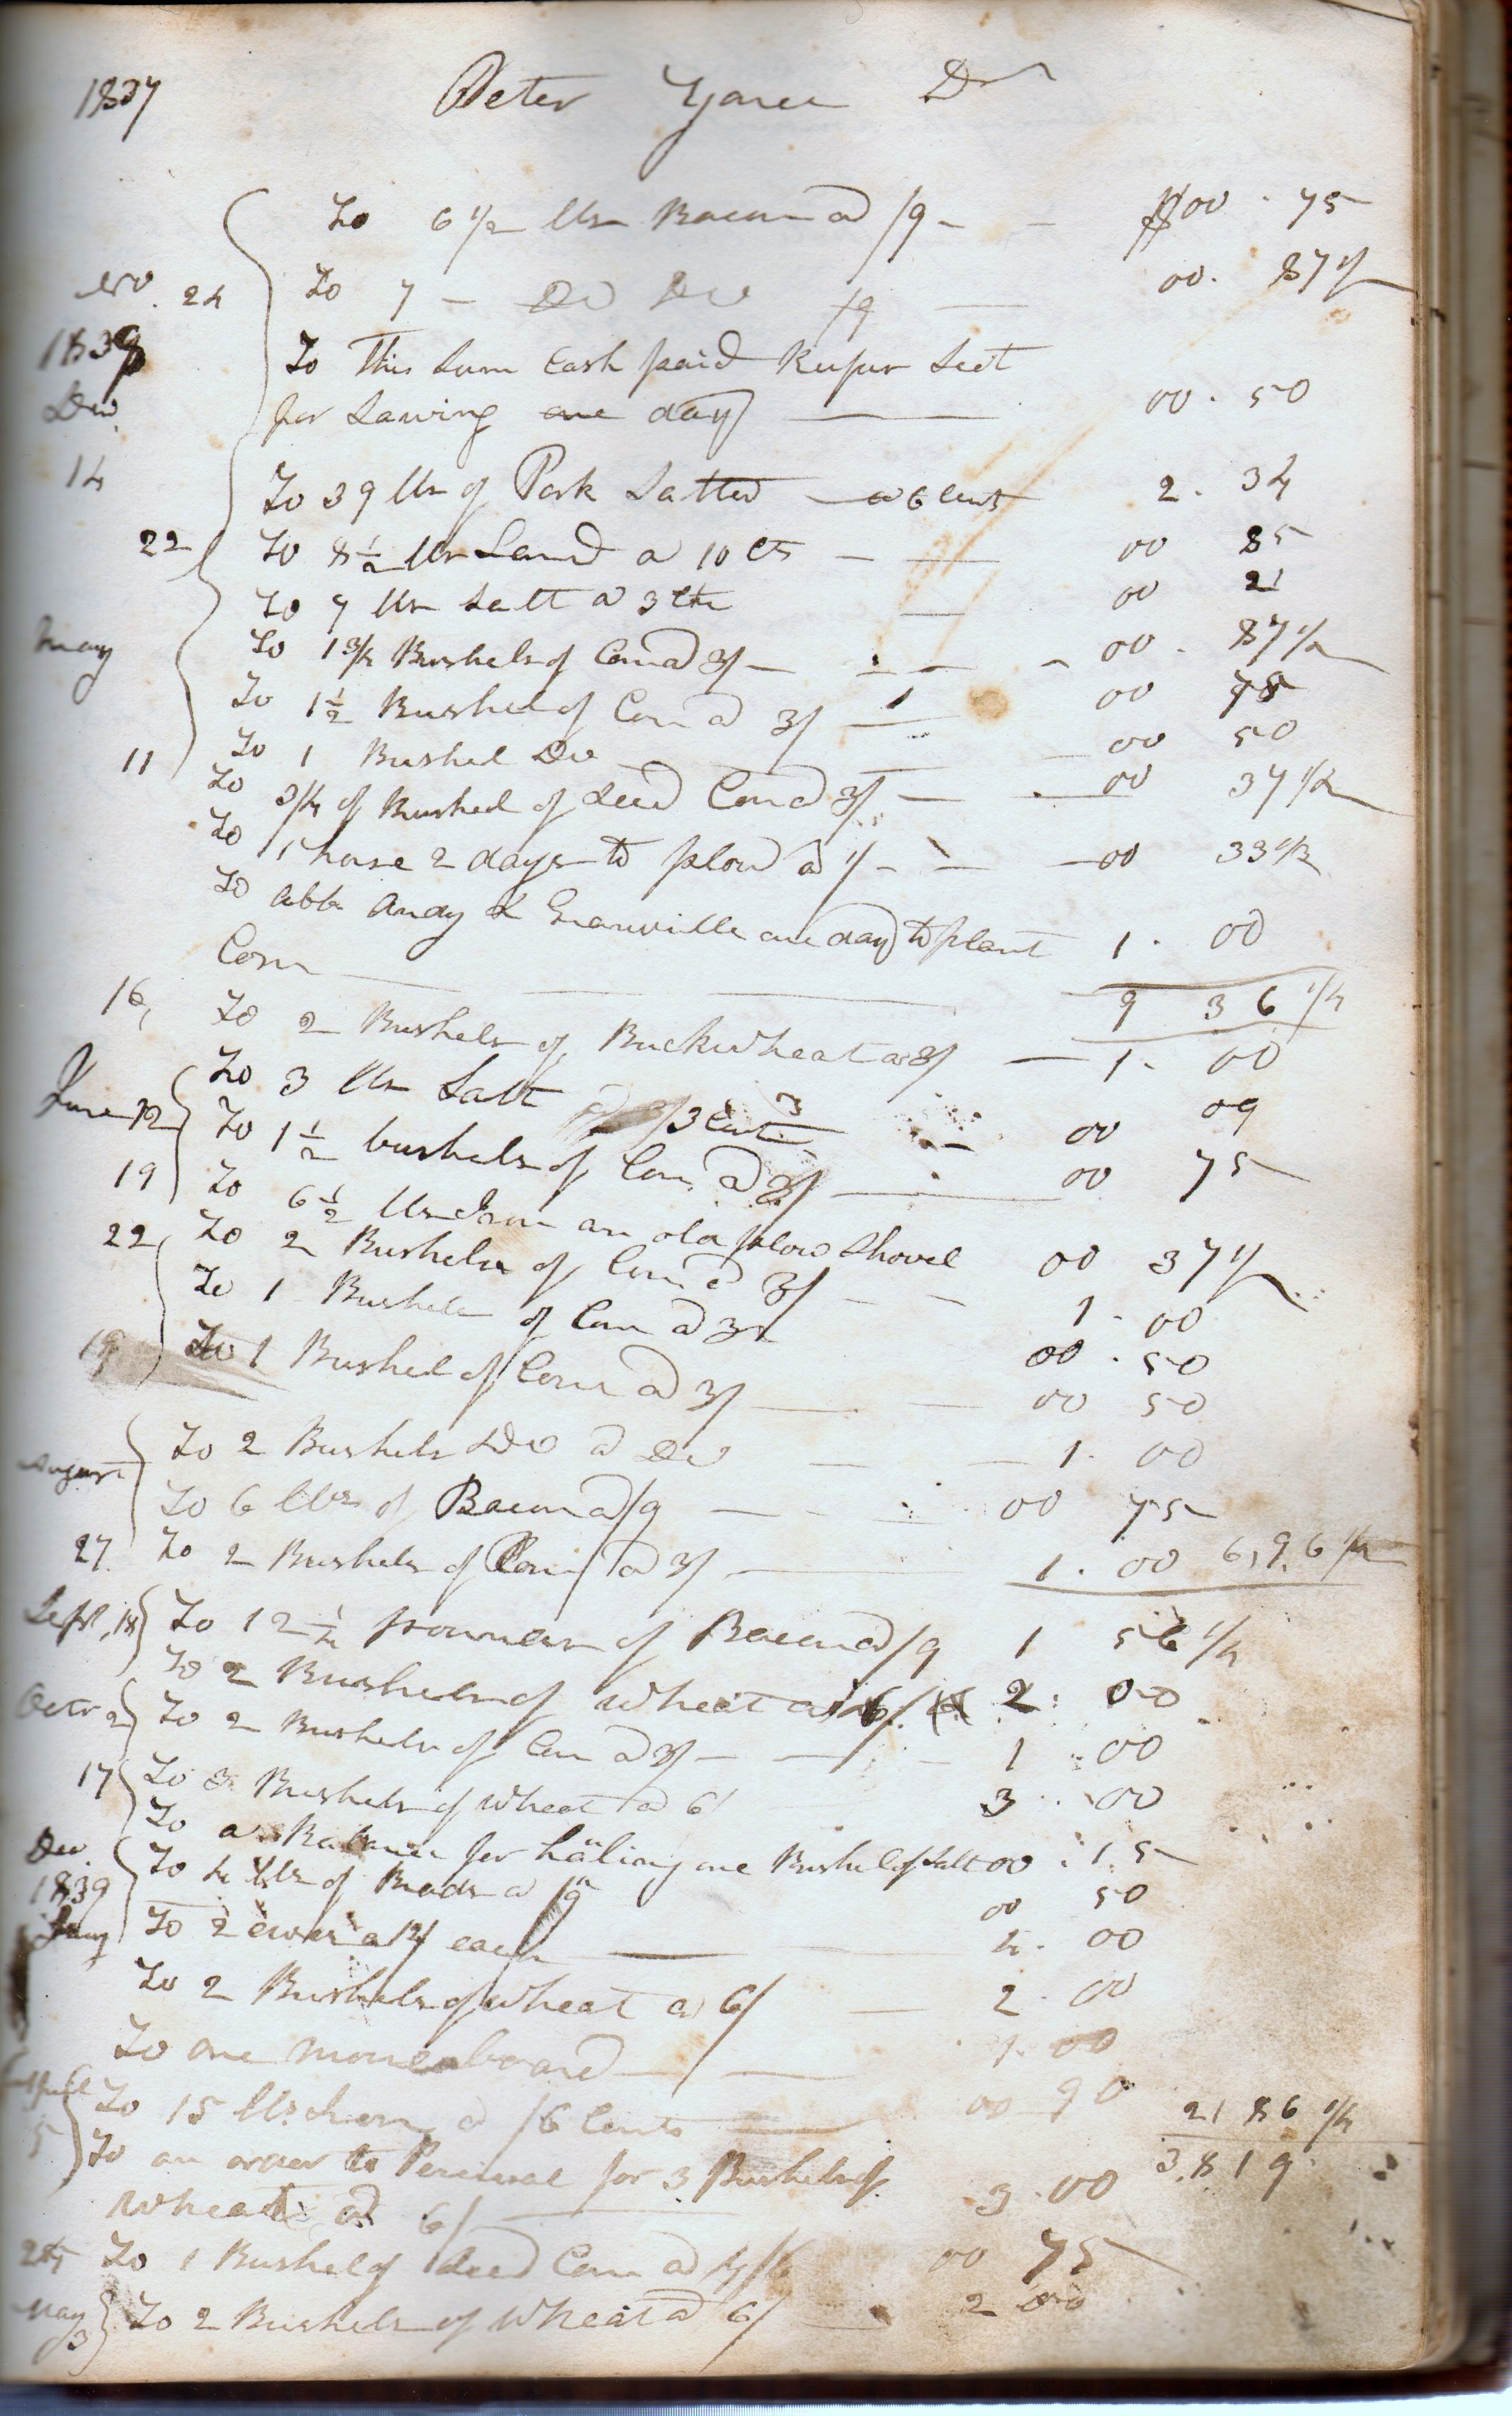 1837 Peter Yaree Dr
To 6 1/2 lbs Bacon a /9 - - $00 . 75
24 To 7 - Do Do /9 00 . 87 1/2
1839 To This Sum Cash paid
Dec. for Sawing one day 00 . 50
14 To 39 lbs of Pork Salted a 6 cents 2 . 34
22 To 8 1/2 lbs Lard a 10 cts 00 85
To 7 lbs Salt a 3 cts 00 21
May To 1 3/4 Bushels of Corn a 3/ - 00 . 87 1/2
To 1 1/2 Bushel of Corn a 3/ 00 75
11 To 1 Bushel Do 00 50
To 3/4 of Bushel of Seed Corn a 3/ 00 37 1/2
To 1 horse 2 days to plow a 1/ - 00 33 1/3
To Abb Andy & Granville one day to plant 1 . 00
Corn
9 36 1/4
16, To 2 Bushels of Buckwheat a 3/ 1 . 00
To 3 lbs Salt a 3 cents 00 09
June 12 To 1 1/2 bushels of Corn a 3/ 00 75
19 To 6 1/2 lbs Iron an old plow Shovel 00 37 1/2
22 To 2 Bushels of Corn a 3/ 1 . 00
To 1 Bushels of Corn a 3/ 00 . 50
19 To 1 Bushel of Corn a 3/ 00 50
August To 2 Bushels Do a Do 1 . 00
To 6 lbs of Bacon a /9 00 75
27 To 2 Bushels of Corn a 3/ 1 . 00 6,9.6 1/4
Sept, 18 To 12 1/2 pounds of Bacon a /9 1 56 1/4
To 2 Bushels of Wheat a 6/ 2 : 00
Octr 2 To 2 Bushels of Corn a 3/ - 1 00
17 To 3 Bushels of Wheat a 6/ 3 . 00
To a Balance for haling one Bushel of Salt 00 : 15
Dec. To 4 lbs of a /9 00 50
1839
Jany To 2 ewes a 12/ each 4 . 00
To 2 Bushels of Wheat a 6/ 2 . 00
To one 1 . 00
April To 15 lbs Iron a /6 Cents 00 90
21 86 1/4
5 To an order to Percival for 3 Bushels of 3 . 00
38 19
Wheat a 6/
24 To 1 Bushel of Seed Corn a 4/6 00 75
May 3 To 2 Bushels of Wheat a 6/ 2 00